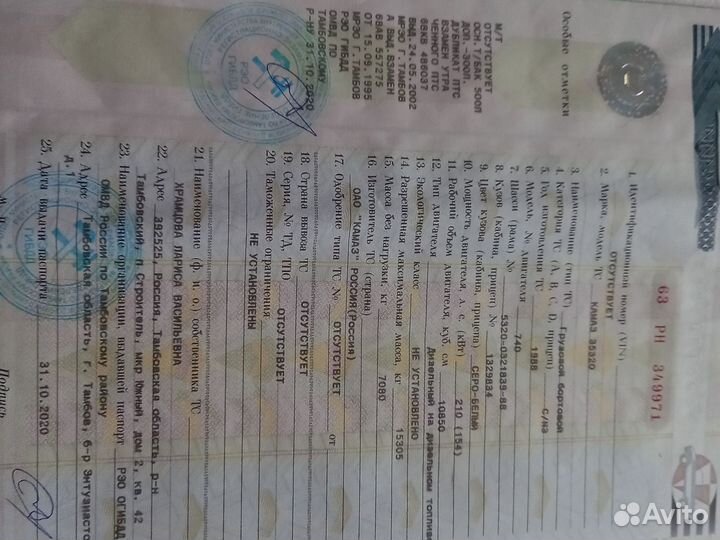 63 РН 349971
1. Идентификационный номер (VIN) ОТСУТСТВУЕТ
2. Марка, модель ТС КАМАЗ 35320
3. Наименование (тип ТС) Грузовой бортовой
4. Категория ТС (А, В, С, D, прицеп) С/N3
5. Год изготовления ТС 1988
6. Модель, № двигателя 740
7. Шасси (рама) № 5320-0321839-88
8. Кузов (кабина, прицеп) № 1329834
9. Цвет кузова (кабины, прицепа) СЕРО-БЕЛЫЙ
10. Мощность двигателя, л. с. (кВт) 210 (154)
11. Рабочий объем двигателя, куб. см 10850
12. Тип двигателя Дизельный на дизельном топливе
13. Экологический класс НЕ УСТАНОВЛЕНО
14. Разрешенная максимальная масса, кг 15305
15. Масса без нагрузки, кг 7080
16. Изготовитель ТС (страна)
ОАО "КАМАЗ" РОССИЯ(РОССИЯ)
17. Одобрение типа ТС № ОТСУТСТВУЕТ от
18. Страна вывоза ТС ОТСУТСТВУЕТ
19. Серия, № ТД, ТПО ОТСУТСТВУЕТ
20. Таможенные ограничения
НЕ УСТАНОВЛЕНЫ
21. Наименование (ф. и. о.) собственника ТС
ХРАМЦОВА ЛАРИСА ВАСИЛЬЕВНА
22. Адрес 392525, Россия, Тамбовская область, р-н
Тамбовский, п Строитель, мкр Южный, дом 2, кв. 42
23. Наименование организации, выдавшей паспорт РЭО ОГИБДД
ОМВД России по Тамбовскому району
24. Адрес Тамбовская область, г. Тамбов, б-р Энтузиастов
д.1
25. Дата выдачи паспорта 31.10.2020
М. П.
Подпись
Особые отметки
М/Т
ОТСУТСТВУЕТ
ОСН. Т/БАК 500Л
ДОП. -300Л.
ДУБЛИКАТ ПТС
ВЗАМЕН УТРА
ЧЕННОГО ПТС
68КВ 486037
ВЫД.24.05.2002
МРЭО Г.ТАМБОВ
А ВЫД.ВЗАМЕН
68АВ 551275
ОТ 15.09.1995
МРЭО Г.ТАМБОВ
РЭО ГИБДД
ОМВД ПО
ТАМБОВСКОМУ
Р-НУ 31.10.2020
РЭО
ГИБДД
Avito